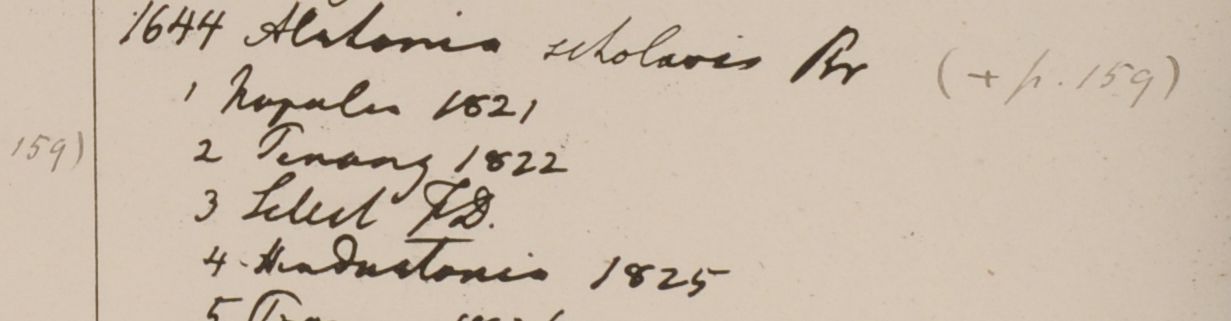 1644 Alstonia scholaris Br (+ p. 159)
1 Napalia 1821
159)
2 Penang 1822
3 Silhet F.D.
4 Hindustania 1825
5